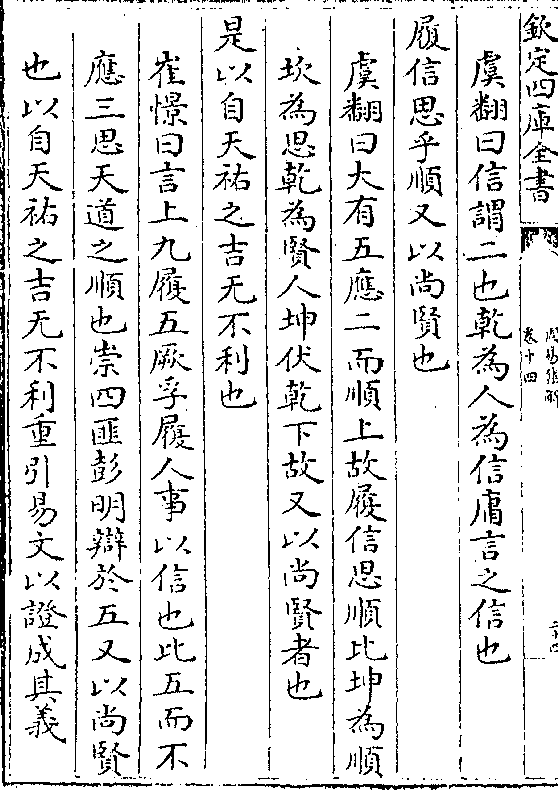 欽定四庫全書
卷十四
虞翻曰信謂二也乾為人為信庸言之信也
履信思乎順又以尚賢也
虞翻曰大有五應二而順上故履信思順比坤為順
坎為思乾為賢人坤伏乾下故又以尚賢者也
是以自天祐之吉无不利也
崔憬曰言上九履五厥孚履人事以信也比五而不
應三思天道之順也崇四匪彭明辯於五又以尚賢
也以自天祐之吉无不利重引易文以證成其義